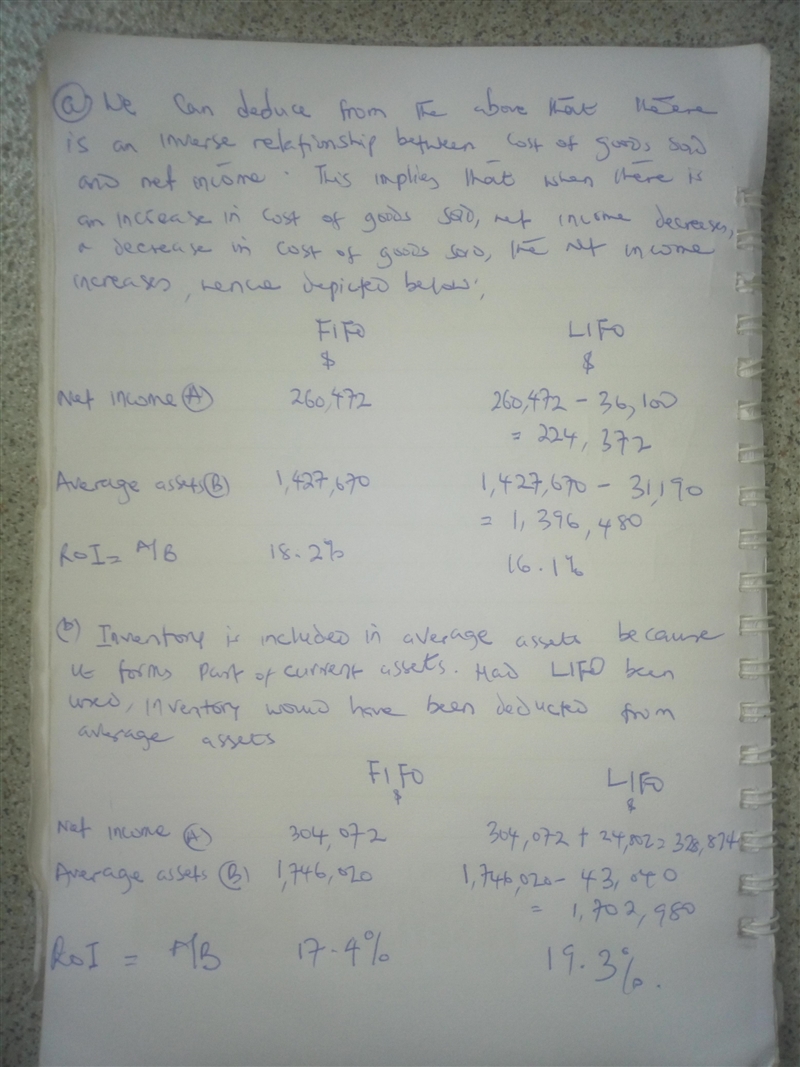 (a) We can deduce from the above that there
is an inverse relationship between cost of goods sold
and net income. This implies that when there is
an increase in cost of goods sold, net income decreases,
a decrease in cost of goods sold, the net income
increases, hence depicted below;
FIFO LIFO
$ $
Net income (A) 260,472 260,472 - 36,100
= 224,372
Average assets (B) 1,427,670 1,427,670 - 31,190
= 1,396,480
ROI = A/B 18.2% 16.1%
(b) Inventory is included in average assets because
it forms part of current assets. Had LIFO been
used, inventory would have been deducted from
average assets
FIFO LIFO
$ $
Net income (A) 304,072 304,072 + 24,802 = 328,874
Average assets (B) 1,746,020 1,746,020 - 43,040
= 1,702,980
ROI = A/B 17.4% 19.3%.